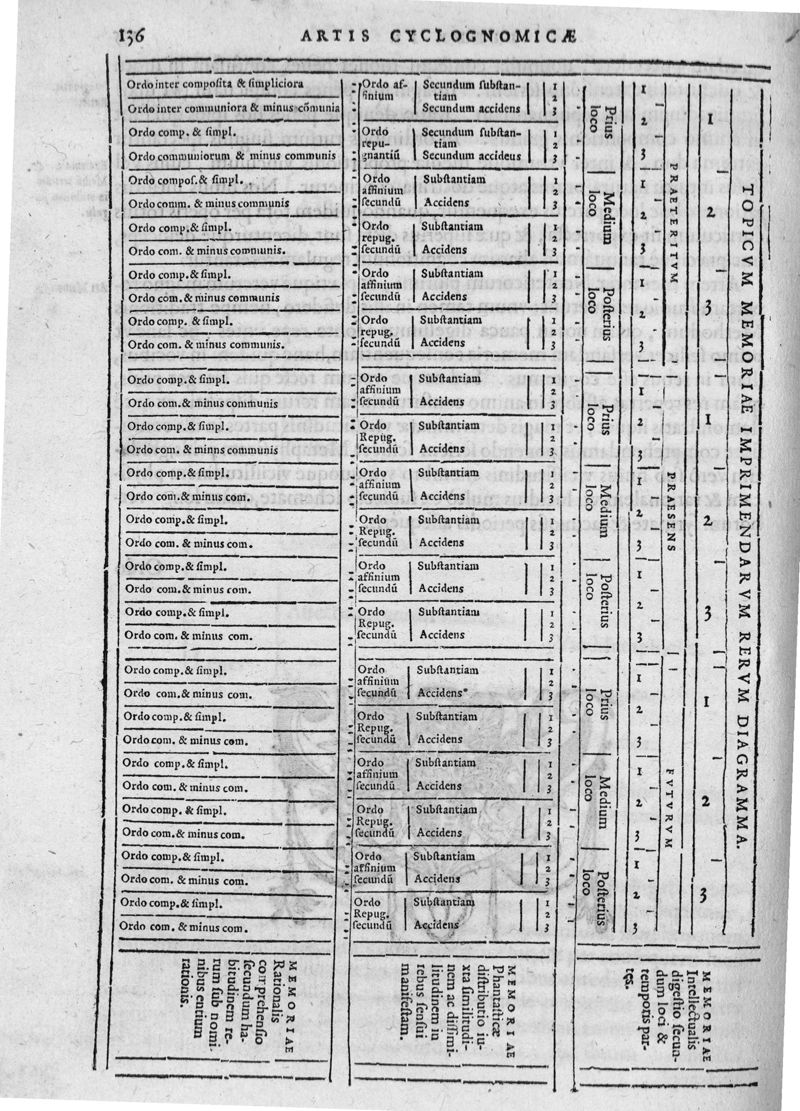 136 ARTIS CYCLOGNOMICÆ
TOPICVM MEMORIAE IMPRIMENDARVM RERVM DIAGRAMMA.
1
2
3
1
2
3
1
2
3
PRAETERITVM
PRAESENS
FVTVRVM
1
2
3
1
2
3
1
2
3
1
2
3
1
2
3
1
2
3
1
2
3
1
2
3
1
2
3
Prius loco
Medium loco
Posterius loco
Prius loco
Medium loco
Posterius loco
Prius loco
Medium loco
Posterius loco
Ordo inter composita & simpliciora Ordo af- Secundum substan- 1
finium tiam 2
Ordo inter communiora & minus cõmunia Secundum accidens 3
Ordo comp. & simpl. Ordo Secundum substan- 1
repu- tiam 2
Ordo communiorum & minus communis gnantiũ Secundum accideus 3
Ordo compos. & simpl. Ordo Substantiam 1
affinium 2
Ordo comm. & minus communis secundũ Accidens 3
Ordo comp. & simpl. Ordo Substantiam 1
repug. 2
Ordo com. & minus communis. secundũ Accidens 3
Ordo comp. & simpl. Ordo Substantiam 1
affinium 2
Ordo com. & minus communis secundũ Accidens 3
Ordo comp. & simpl. Ordo Substantiam 1
repug. 2
Ordo com. & minus communis. secundũ Accidens 3
Ordo comp. & simpl. Ordo Substantiam 1
affinium 2
Ordo com. & minus communis secundũ Accidens 3
Ordo comp. & simpl. Ordo Substantiam 1
Repug. 2
Ordo com. & minns communis secundũ Accidens 3
Ordo comp. & simpl. Ordo Substantiam 1
affinium 2
Ordo com. & minus com. secundũ Accidens 3
Ordo comp. & simpl. Ordo Substantiam 1
Repug. 2
Ordo com. & minus com. secundũ Accidens 3
Ordo comp. & simpl. Ordo Substantiam 1
affinium 2
Ordo com. & minus com. secundũ Accidens 3
Ordo comp. & simpl. Ordo Substantiam 1
Repug. 2
Ordo com. & minus com. secundũ Accidens 3
Ordo comp. & simpl. Ordo Substantiam 1
affinium 2
Ordo com. & minus com. secundũ Accidens 3
Ordo comp. & simpl. Ordo Substantiam 1
Repug. 2
Ordo com. & minus com. secundũ Accidens 3
Ordo comp. & simpl. Ordo Substantiam 1
affinium 2
Ordo com. & minus com. secundũ Accidens 3
Ordo comp. & simpl. Ordo Substantiam 1
Repug. 2
Ordo com. & minus com. secundũ Accidens 3
Ordo comp. & simpl. Ordo Substantiam 1
affinium 2
Ordo com. & minus com. secundũ Accidens 3
Ordo comp. & simpl. Ordo Substantiam 1
Repug. 2
Ordo com. & minus com. secundũ Accidens 3
MEMORIAE
Rationalis
comprehensio
secundum ha-
bitudinem re-
rum sub nomi-
nibus entium
rationis.
MEMORIAE
Phantasticæ
distributio iu-
xta similitudi-
nem ac dissimi
litudinem in
rebus sensui
manifestam.
MEMORIAE
Intellectualis
digestio secun-
dum loci &
temporis par-
tes.